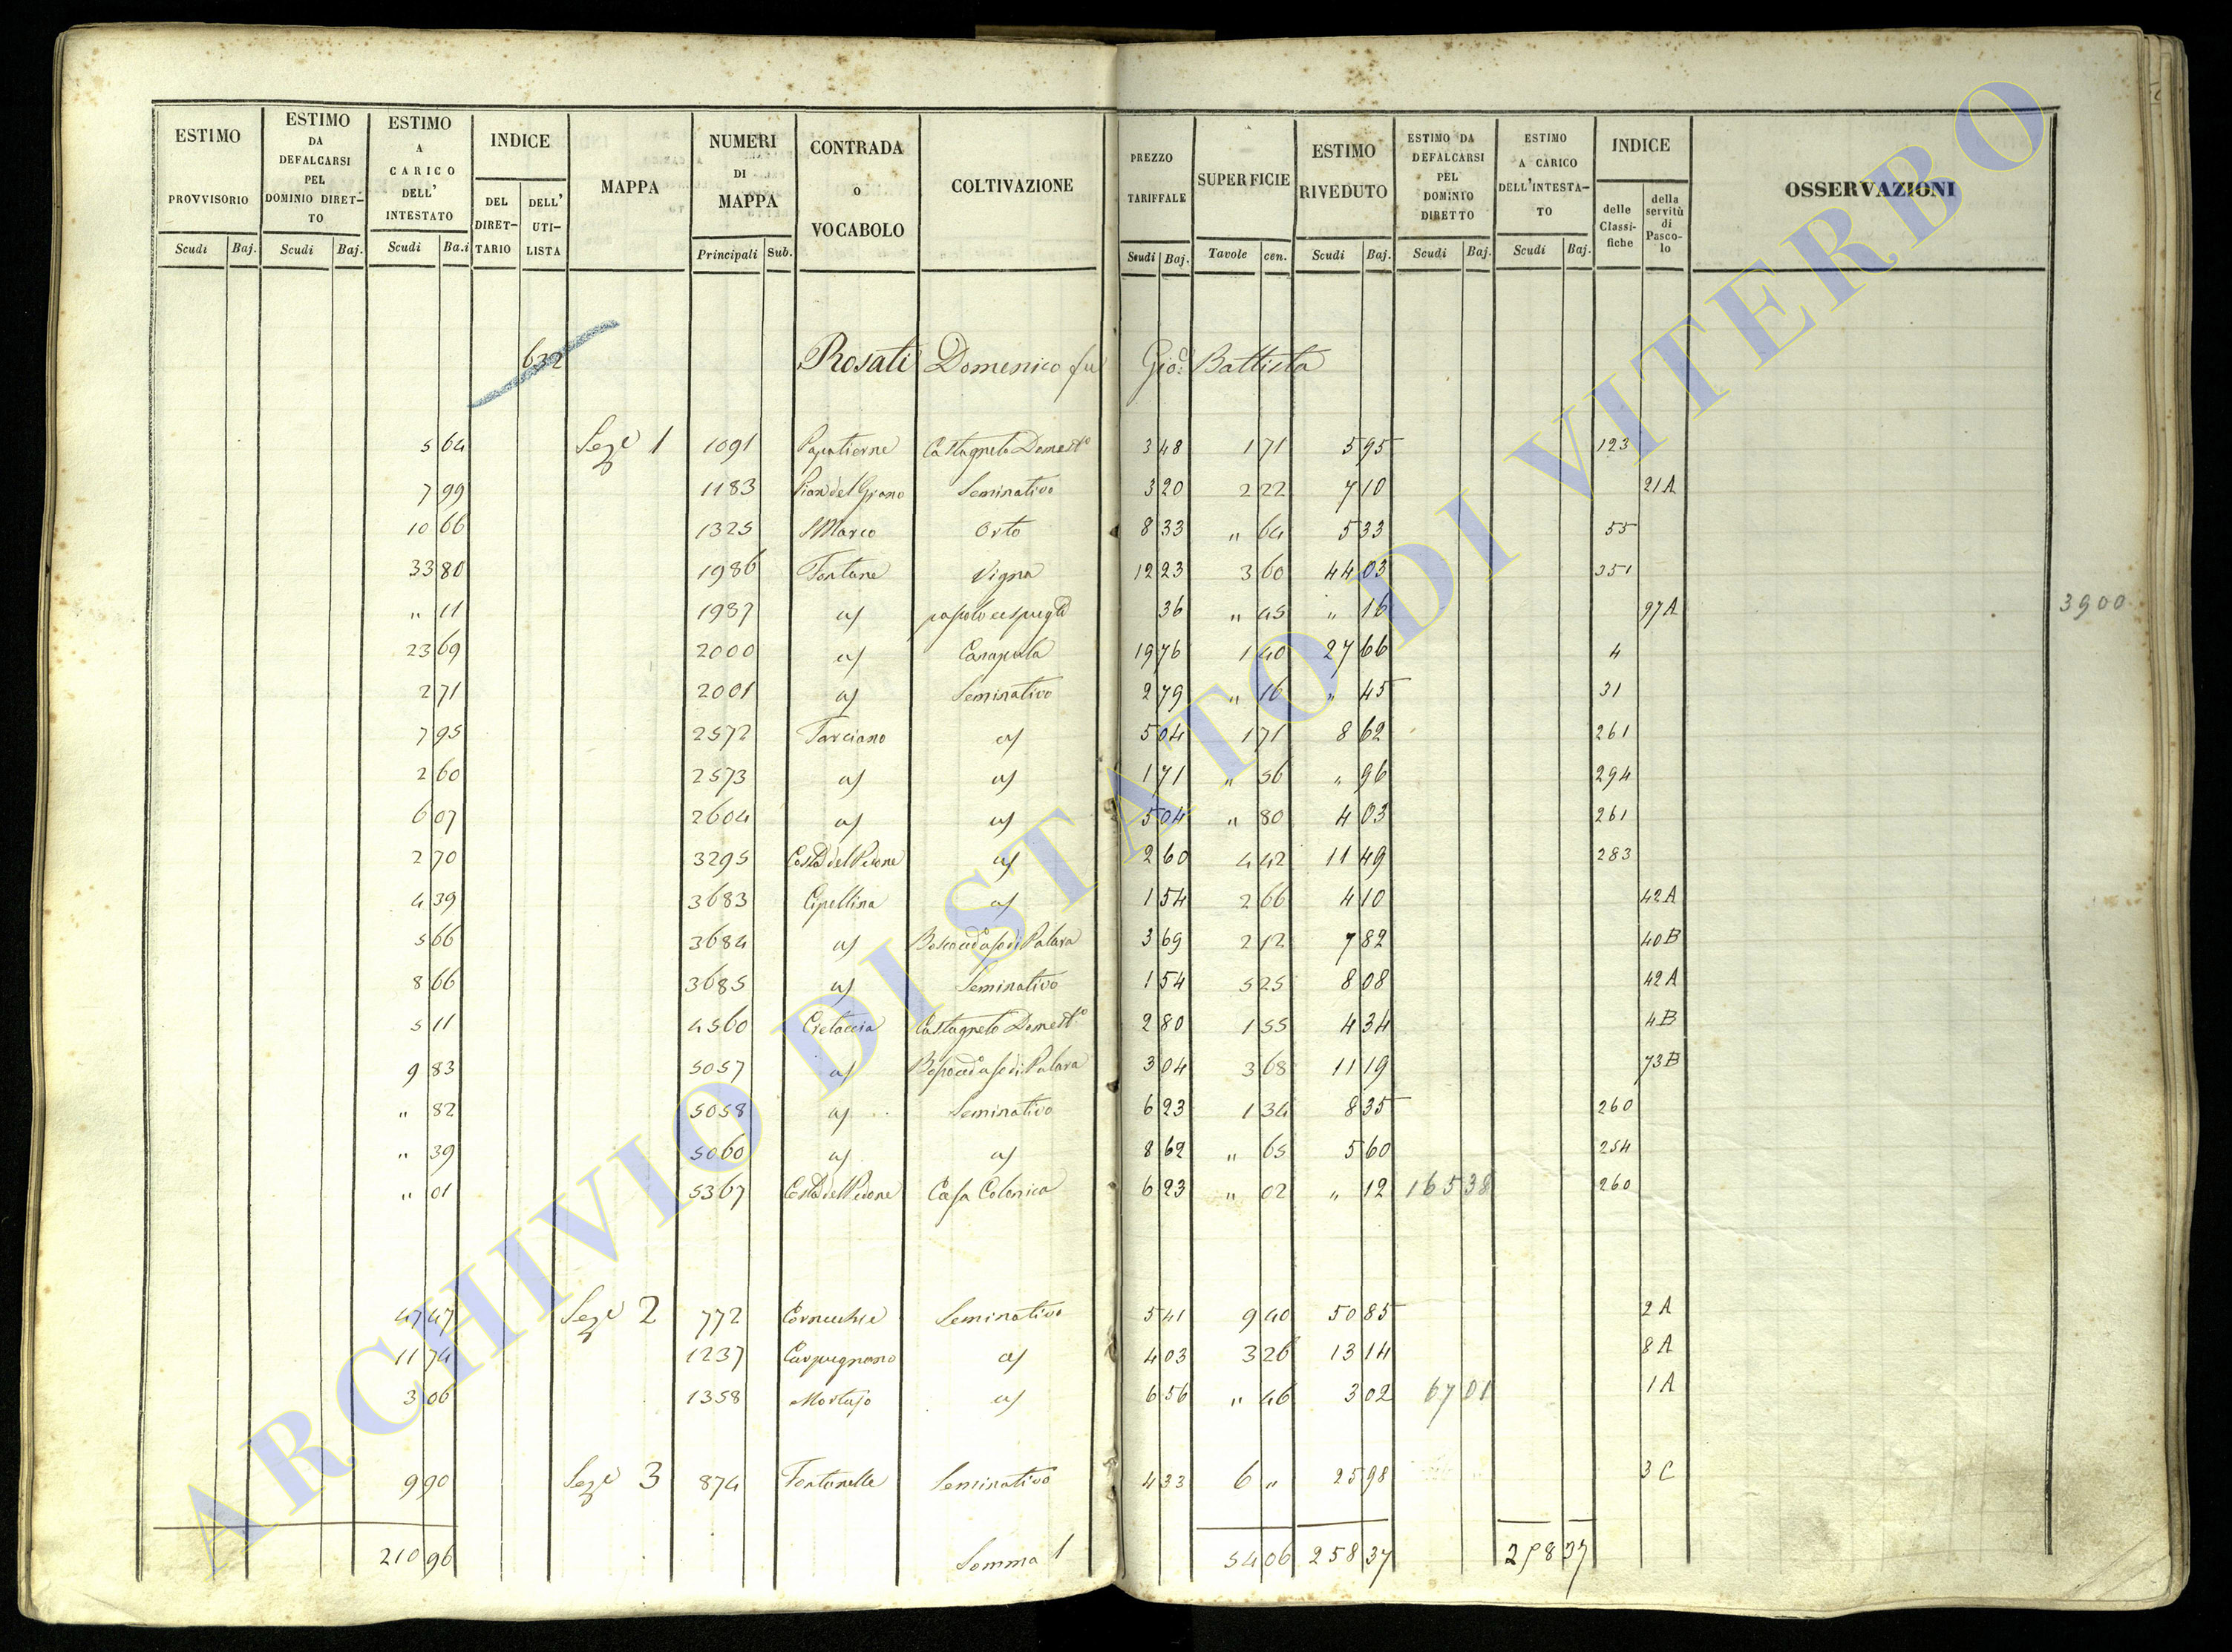 ESTIMO PROVVISORIO Scudi Baj.
ESTIMO DA DEFALCARSI PEL DOMINIO DIRET-TO Scudi Baj.
ESTIMO A CARICO DELL' INTESTATO Scudi Ba.i
INDICE DEL DIRET-TARIO DELL' UTI-LISTA
MAPPA
NUMERI DI MAPPA Principali Sub.
CONTRADA o VOCABOLO
COLTIVAZIONE
PREZZO TARIFFALE Scudi Baj.
SUPERFICIE Tavole cen.
ESTIMO RIVEDUTO Scudi Baj.
ESTIMO DA DEFALCARSI PEL DOMINIO DIRETTO Scudi Baj.
ESTIMO A CARICO DELL'INTESTA-TO Scudi Baj.
INDICE delle Classi-fiche della servitù di Pasco-lo
OSSERVAZIONI
632 Rosati Domenico fu Gio: Battista
5 64 Seze 1 1091 Castagneto Domest.o 3 48 1 71 5 95 123
7 99 1183 Pian del Grano Seminativo 3 20 2 22 7 10 21A
10 66 1325 S Marco Orto 8 33 " 64 5 33 55
33 80 1986 Fontane Vigna 12 23 3 60 44 03 351
" 11 1987 a/ 36 " 45 " 16 97A 3900
23 69 2000 a/ Canapula 19 76 1 40 27 66 4
2 71 2001 a/ Seminativo 2 79 " 16 " 45 31
7 95 2572 Tarciano a/ 5 04 1 71 8 62 261
2 60 2573 a/ a/ 1 71 " 56 " 96 294
6 07 2604 a/ a/ 5 04 " 80 4 03 261
2 70 3295 Costa del a/ 2 60 4 42 11 49 283
4 39 3683 Cipellina a/ 1 54 2 66 4 10 42A
5 66 3684 a/ Bosco ced. a so di Palara 3 69 2 12 7 82 40B
8 66 3685 a/ Seminativo 1 54 5 25 8 08 42A
5 11 4560 Cretaccia Castagneto Domest.o 2 80 1 55 4 34 4B
9 83 5057 a/ Bosco ced. a so di Palara 3 04 3 68 11 19 73B
" 82 5058 a/ Seminativo 6 23 1 34 8 35 260
" 39 5060 a/ a/ 8 62 " 65 5 60 254
" 01 5367 Costa del Casa Colonica 6 23 " 02 " 12 165 38 260
47 47 Seze 2 772 Cornacchie Seminativo 5 41 9 40 50 85 2A
11 74 1237 Carpugnano a/ 4 03 3 26 13 14 8A
3 06 1358 Mortajo a/ 6 56 " 46 3 02 67 01 1A
9 90 Seze 3 874 Fontanelle Seminativo 4 33 6 " 25 98 3C
210 96 Somma 1 54 06 258 37 258 37
ARCHIVIO DI STATO DI VITERBO